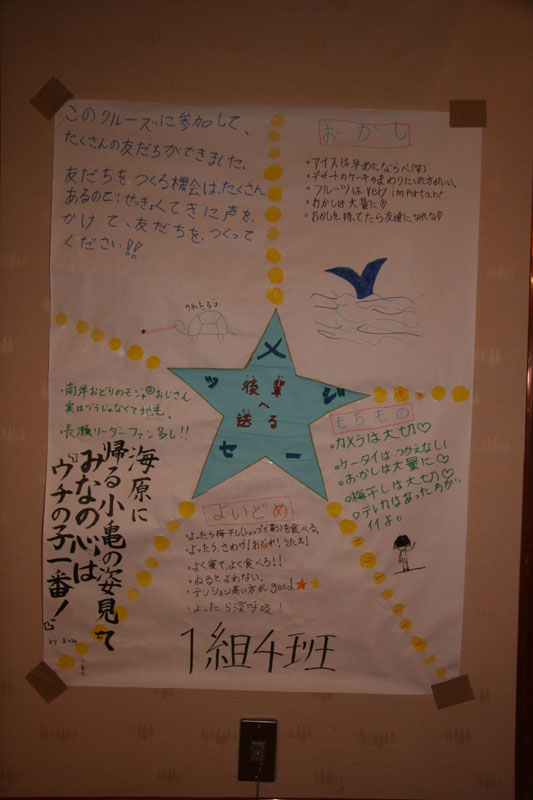 このクルーズに参加して、
たくさんの友だちができました。
友だちをつくる機会はたくさん
あるので、せっきょくてきに声を、
かけて、友だちを、つくって
ください!!
おかし
・アイスは早めにならべ(笑)
・デザートのケーキのまわりにいた方がいい。
・フルーツは very important
・おかしは大量に
・おかしを持ってたら友達に
メッセージ
後輩
へ
送る
・南洋おどりのモジャ おじさん
実はヅラじゃなくて地毛。
・長瀬リーダーファン多し!!
海原に
帰る小亀の姿見て
みなの心は
『ウチの子一番!』
もちもの
・カメラは大切♡
・ケータイはつかえない
・おかしは大量に♡
・梅干しは大切♡
・テレカはあった方が、
イイよ。
よいどめ
・よったら梅干し を食べる。
・よったら、さわげ!おどれ!うたえ!
・よく寝て、よく食べろ!!
・ねるとよわない。
・テンション高い方が good★★
・よったら深呼吸!
1組4班